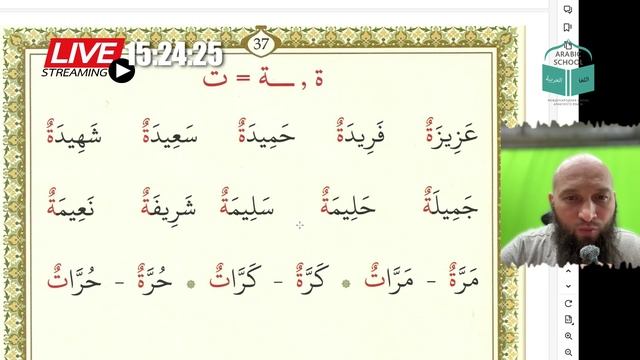 LIVE 15:24:25
STREAMING
37
ة , ـة = ت
عَزِيزَةٌ فَرِيدَةٌ حَمِيدَةٌ سَعِيدَةٌ شَهِيدَةٌ
جَمِيلَةٌ حَلِيمَةٌ سَلِيمَةٌ شَرِيفَةٌ نَعِيمَةٌ
مَرَّةٌ - مَرَّاتٌ * كَرَّةٌ - كَرَّاتٌ * حُرَّةٌ - حُرَّاتٌ
ARABIC
SCHOOL
العربية اللغة